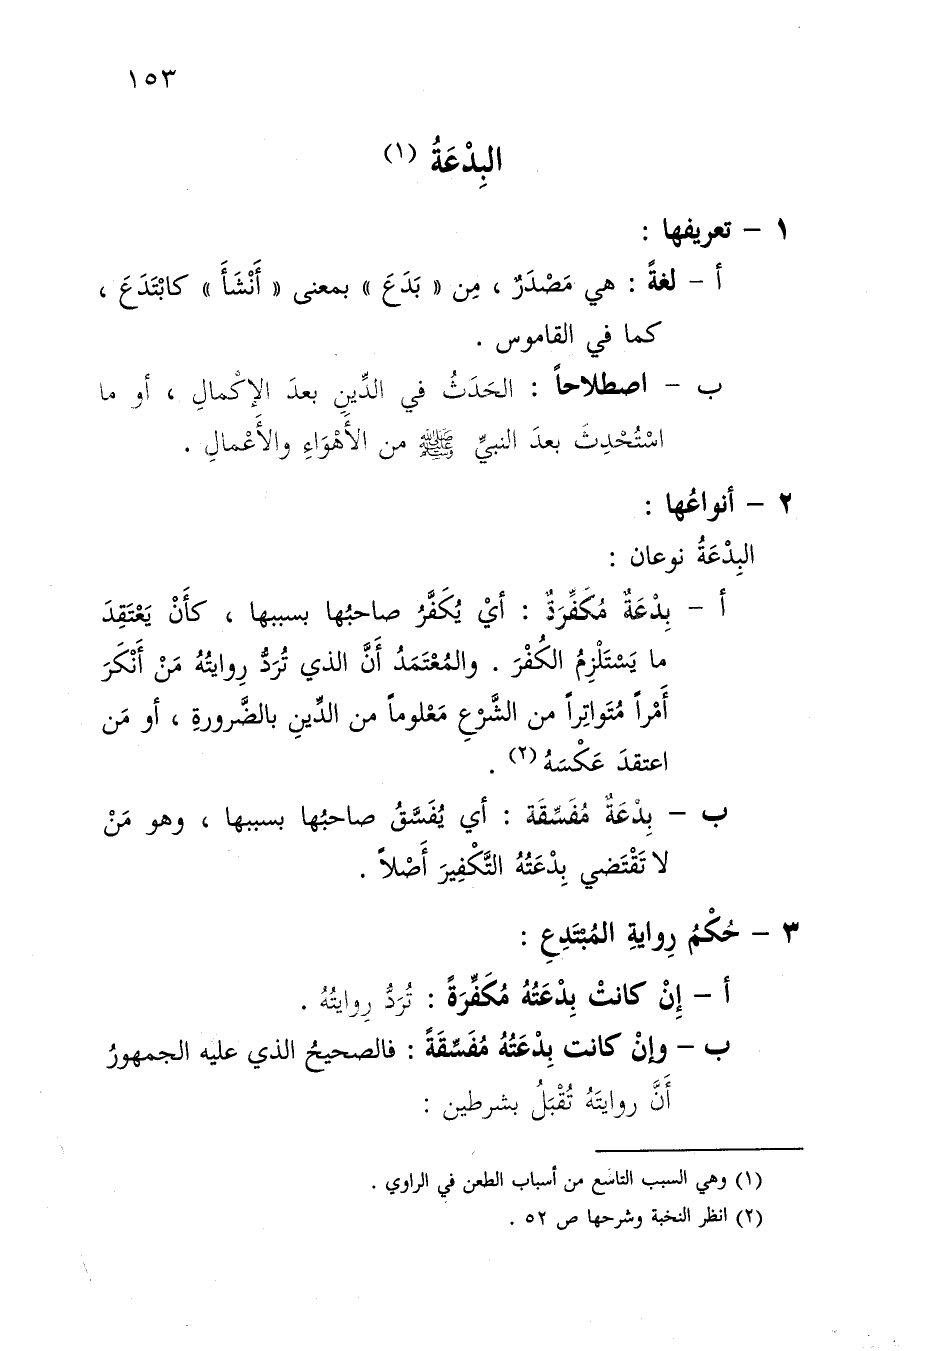 ١٥٣
البِدْعَةُ (١)
١ – تعريفها :
أ – لغةً : هي مَصْدَرٌ ، مِن « بَدَعَ » بمعنى « أَنْشَأَ » كابْتَدَعَ ،
كما في القاموس .
ب – اصطلاحاً : الحَدَثُ في الدِّينِ بعدَ الإكْمالِ ، أو ما
اسْتُحْدِثَ بعدَ النبيِّ ﷺ من الأَهْوَاءِ والأَعْمالِ .
٢ – أنواعُها :
البِدْعَةُ نوعان :
أ – بِدْعَةٌ مُكَفِّرَةٌ : أيْ يُكَفَّرُ صاحبُها بسببها ، كأَنْ يَعْتَقِدَ
ما يَسْتَلْزِمُ الكُفْرَ . والمُعْتَمَدُ أَنَّ الذي تُرَدُّ رِوايتُهُ مَنْ أَنْكَرَ
أَمْراً مُتَواتِراً من الشَّرْعِ مَعْلوماً من الدِّينِ بالضَّرورةِ ، أو مَن
اعتقدَ عَكْسَهُ (٢) .
ب – بِدْعَةٌ مُفَسِّقَة : أي يُفَسَّقُ صاحبُها بسببها ، وهو مَنْ
لا تَقْتَضي بِدْعَتُهُ التَّكْفِيرَ أَصْلاً .
٣ – حُكْمُ رِوايةِ المُبْتَدِعِ :
أ – إِنْ كانتْ بِدْعَتُهُ مُكَفِّرَةً : تُرَدُّ رِوايتُهُ .
ب – وإنْ كانت بِدْعَتُهُ مُفَسِّقَةً : فالصحيحُ الذي عليه الجمهورُ
أَنَّ روايتَهُ تُقْبَلُ بشرطين :
(١) وهي السبب التاسع من أسباب الطعن في الراوي .
(٢) انظر النخبة وشرحها ص ٥٢ .